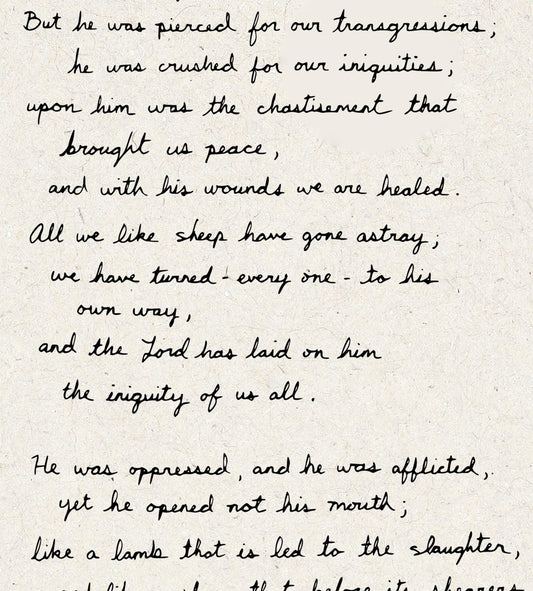 But he was pierced for our transgressions;
he was crushed for our iniquities;
upon him was the chastisement that
brought us peace,
and with his wounds we are healed.
All we like sheep have gone astray;
we have turned - every one - to his
own way,
and the Lord has laid on him
the iniquity of us all.
He was oppressed, and he was afflicted,
yet he opened not his mouth;
like a lamb that is led to the slaughter,
that before its shearers